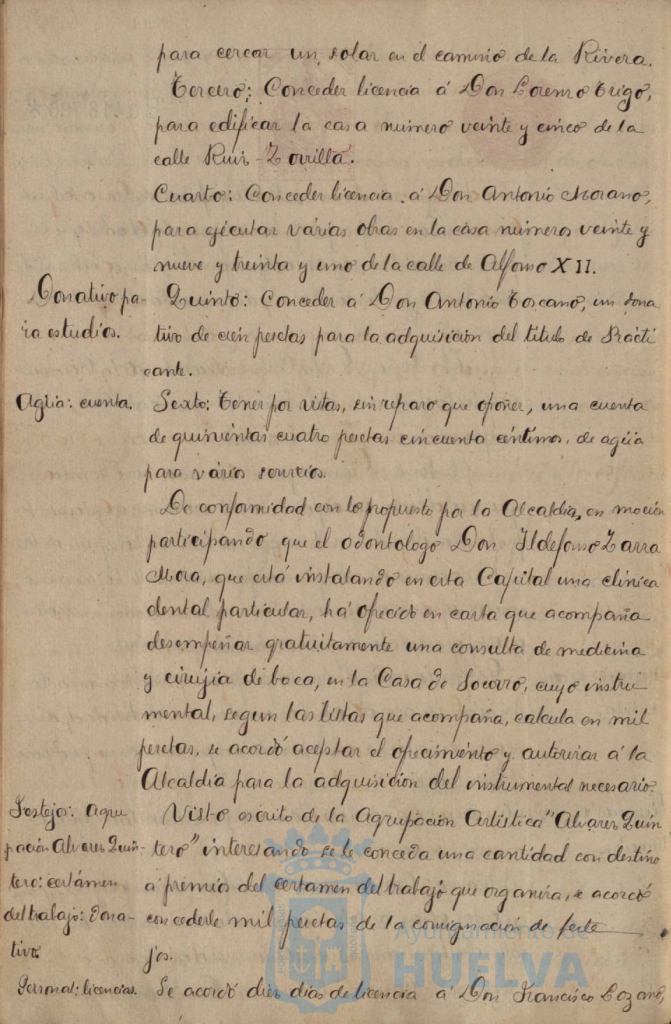 para cercar un solar en el camino de la Rivera.
Tercero: Conceder licencia á Don Lorenzo Trigo,
para edificar la casa numero veinte y cinco de la
calle Ruiz-Zorrilla.
Cuarto: Conceder licencia á Don Antonio Morano,
para ejecutar várias obras en la casa numeros veinte y
nueve y treinta y uno de la calle de Alfonso XII.
Donativo pa-
ra estudios.
Quinto: Conceder á Don Antonio Toscano, un dona
tivo de cien pesetas para la adquisición del titulo de Practi
cante.
Agua: cuenta.
Sexto: Tener por vistas, sin reparo que oponer, una cuenta
de quinientas cuatro pesetas cincuenta céntimos, de agua
para vários servicios.
De conformidad con lo propuesto por la Alcaldía, en moción
participando que el odontologo Don Ildefonso Zarra
Mora, que está instalando en esta Capital una clinica
dental particular, há ofrecido en carta que acompaña
desempeñar gratuitamente una consulta de medicina
y cirujia de boca, en la Casa de Socorro, cuyo instru
mental, segun las listas que acompaña, calcula en mil
pesetas, se acordó aceptar el ofrecimiento y autorizar á la
Alcaldía para la adquisición del instrumental necesario.
Festejos: Agru
pación Alvarez Quin-
tero: certámen
del trabajo: Dona-
tivo
Visto escrito de la Agrupación Artistica "Alvarez Quin
tero" interesando se le conceda una cantidad con destino
á premios del certamen del trabajo que organiza, se acordó
concederle mil pesetas de la consignación de feste
jos.
Personal: licencias.
Se acordó diez dias de licencia á Don Francisco Lozano,
Ayuntamiento de
HUELVA